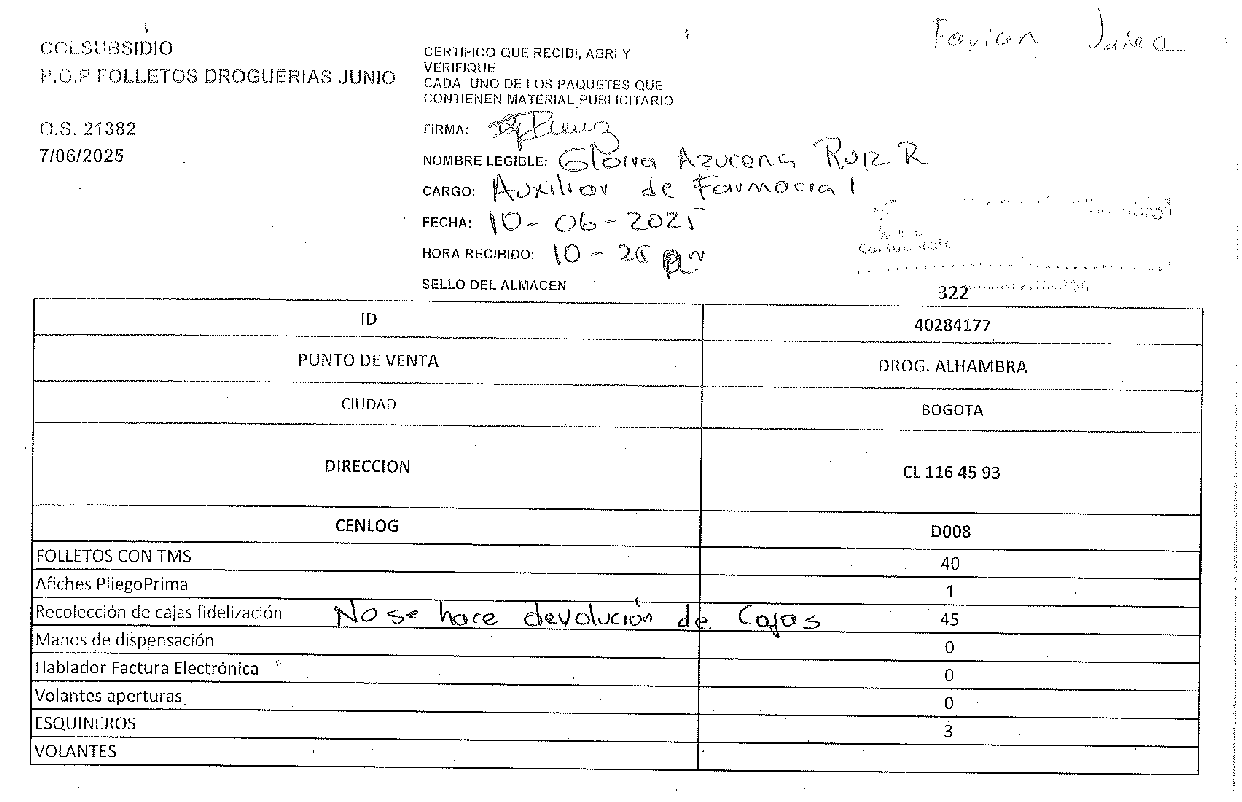 COLSUBSIDIO
P.O.P FOLLETOS DROGUERIAS JUNIO
O.S. 21382
7/06/2025
CERTIFICO QUE RECIBI, ABRI Y
VERIFIQUE
CADA UNO DE LOS PAQUETES QUE
CONTIENEN MATERIAL PUBLICITARIO
FIRMA:
NOMBRE LEGIBLE: Gloria Azucena Ruiz R
CARGO: Auxiliar de Farmacia 1
FECHA: 10-06-2025
HORA RECIBIDO: 10-
SELLO DEL ALMACEN
322
ID 40284177
PUNTO DE VENTA DROG. ALHAMBRA
CIUDAD BOGOTA
DIRECCION CL 116 45 93
CENLOG D008
FOLLETOS CON TMS 40
Afiches PliegoPrima 1
Recolección de cajas fidelización No se hace devolución de Cajas 45
Manos de dispensación 0
Hablador Factura Electrónica 0
Volantes aperturas 0
ESQUINEROS 3
VOLANTES